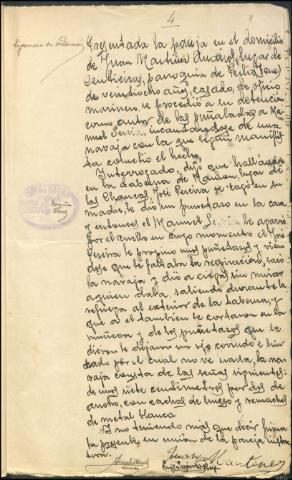 4
Presentada la pareja en el domicilio
de Juan Martinez lugar de
parroquia de
de veintiocho años, casado, de oficio
marinero, se procedió a su detención
como autor de las puñaladas a Ma-
nuel incautandose de una
navaja con la que según manifies-
ta causó el hecho.
Interrogado, dijo que hallandose
en la taberna de Ramon lugar de
las Chancas, José Pereira se cagó en su
madre, le dió un puñetazo en la cara
y entonces el Manuel le agarró
por el cuello en cuyo momento el José
Pereira le propinó unos puñetazos y vien-
dose que le faltaba la respiración, sacó
la navaja y dió a ciegas sin mirar
a quien daba, saliendo durante la
refriega al exterior de la taberna, y
que a el tambien le cortaron en la
muñeca y de los puñetazos que le
dieron le dejaron un ojo cerrado e hin-
chado por el cual no ve nada, la na-
vaja consta de las señas siguientes:
de unos siete centimetros por dos de
ancho, con cachas de hueso y remaches
de metal blanco.
Y no teniendo mas que decir firma
la presente en union de la pareja instruc-
tora.
Juan Martinez